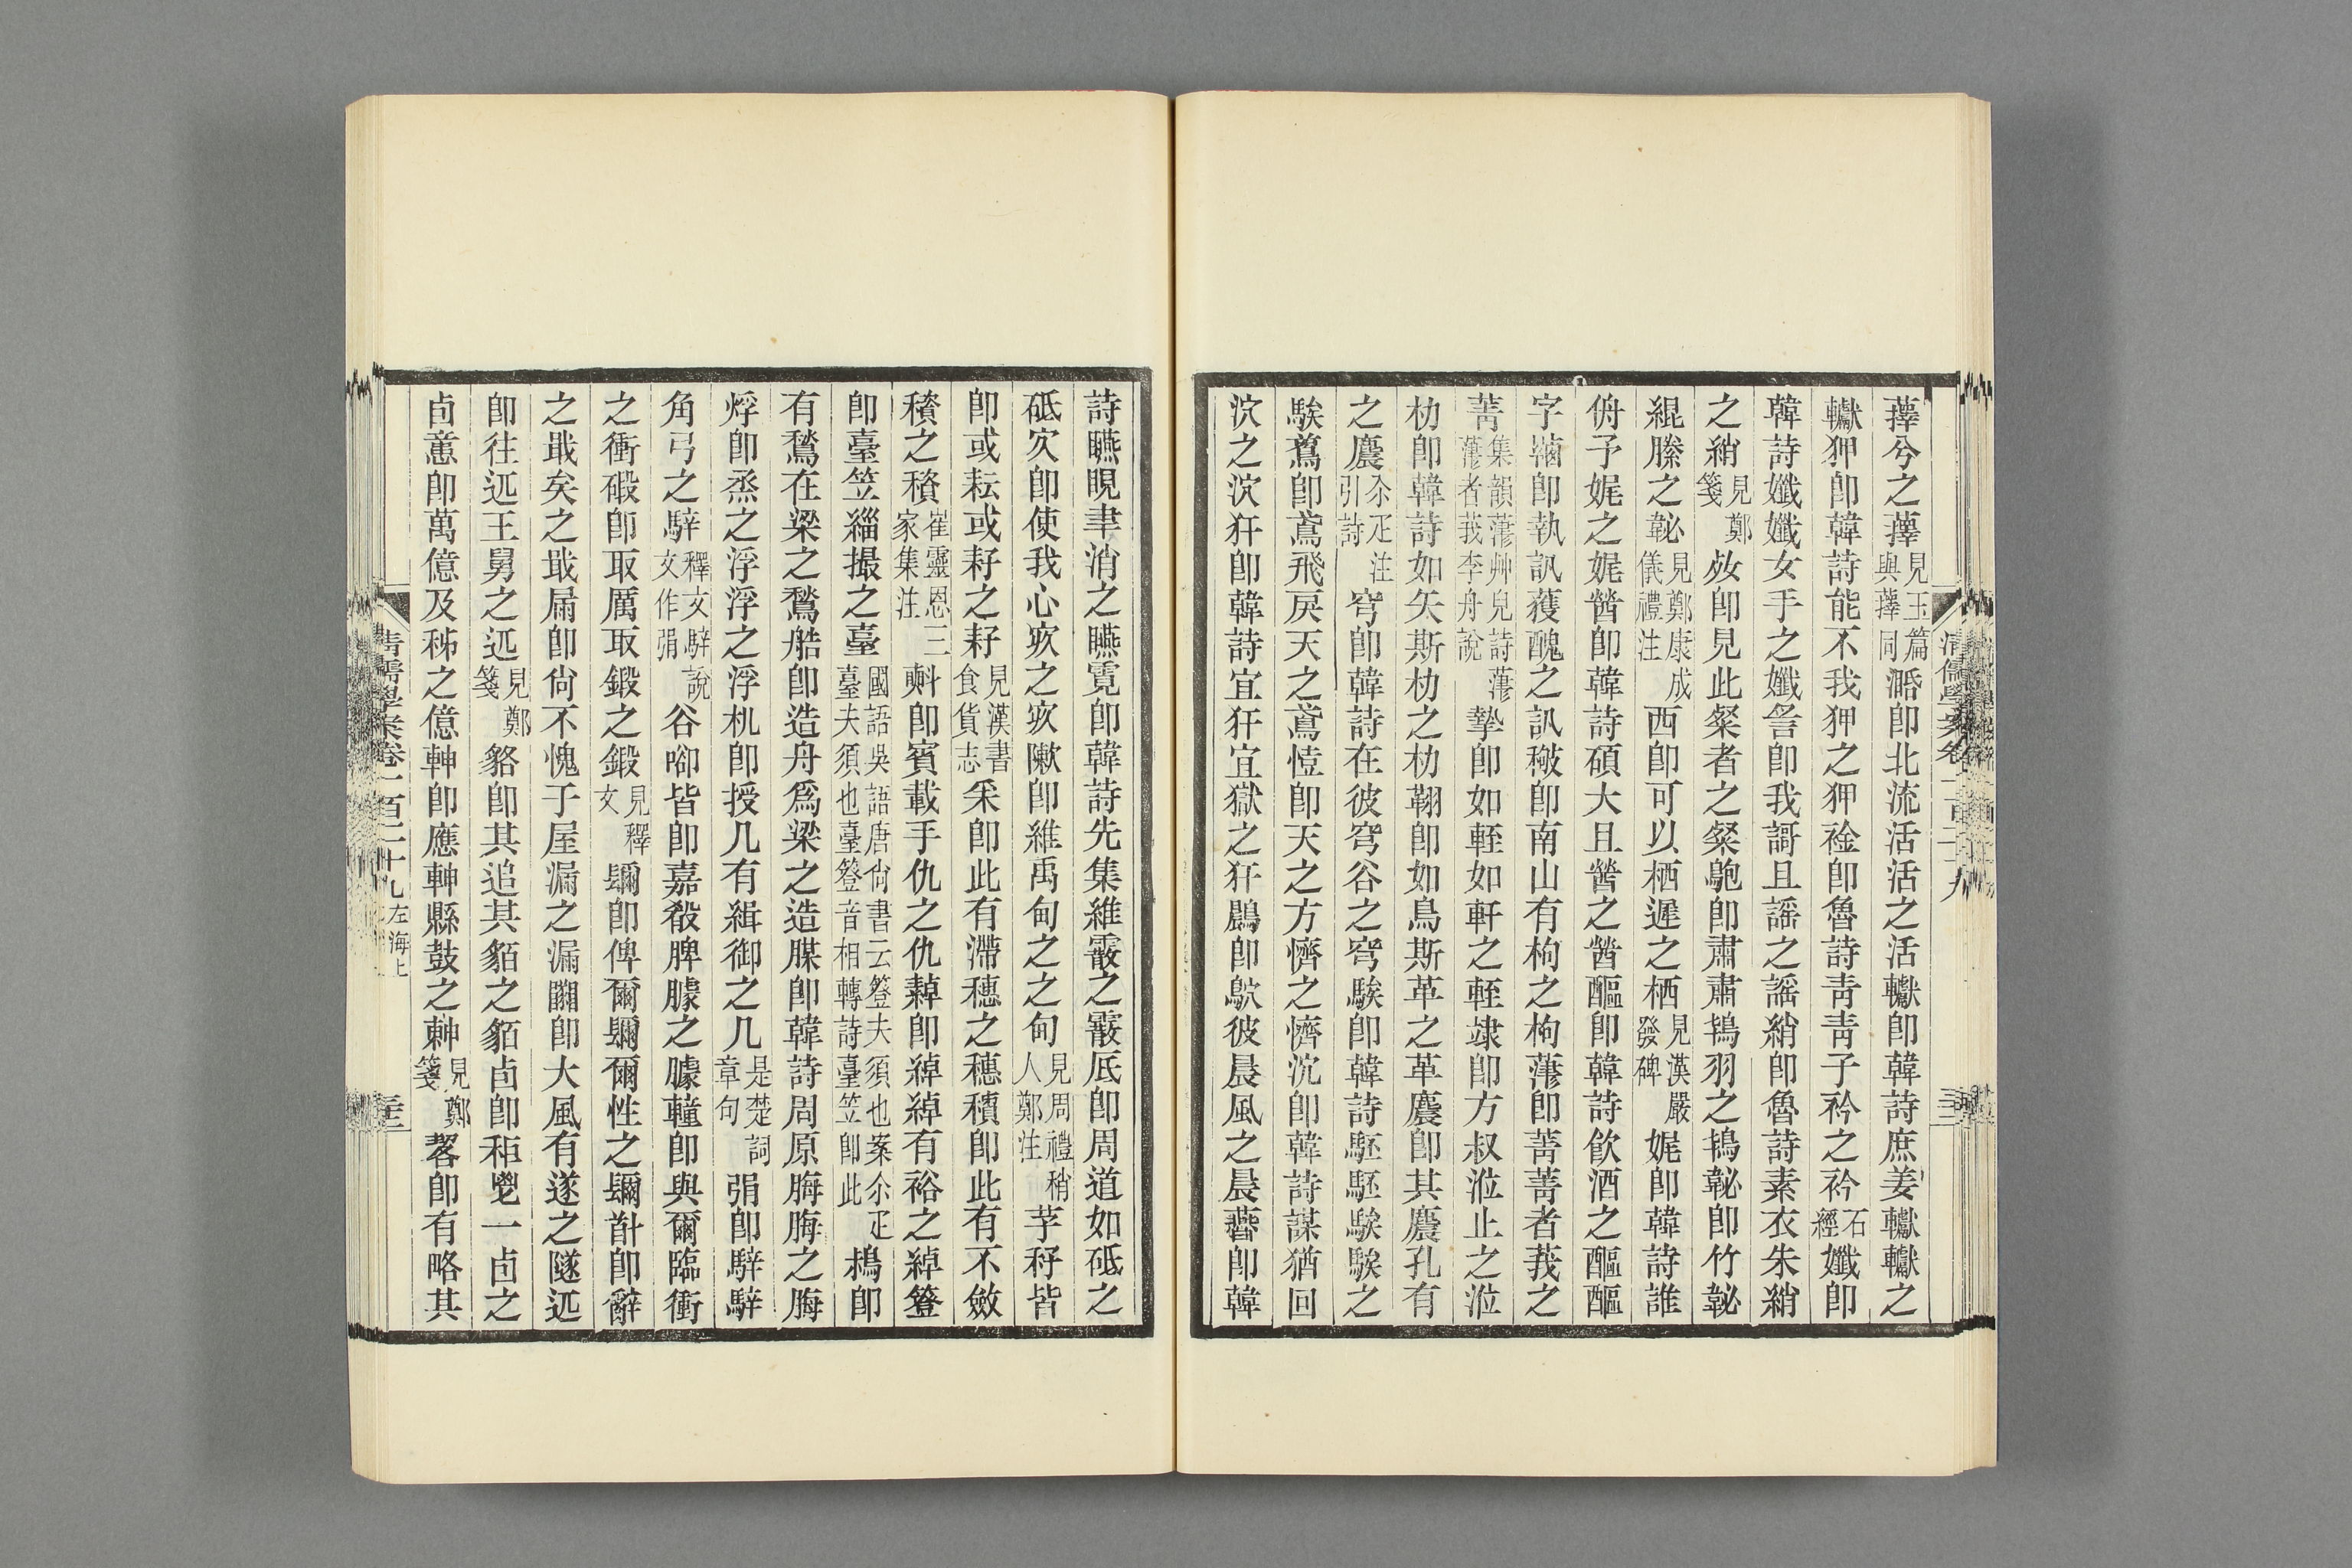 蘀兮之蘀見玉篇與蘀同湉卽北流活活之活钀卽韓詩庶姜钀钀之
钀狎卽韓詩能不我狎之狎裣卽魯詩靑靑子衿之衿石經孅卽
韓詩孅孅女手之孅䚻卽我謌且謠之謠綃卽魯詩素衣朱綃
之綃見鄭箋㛑卽見此粲者之粲鴕卽肅肅鴇羽之鴇䪐卽竹䪐
緄縢之䪐見鄭康成儀禮注西卽可以栖遲之栖見漢嚴發碑娓卽韓詩誰
侜予娓之娓䣽卽韓詩碩大且䣽之䣽醧卽韓詩飮酒之醧醧
字卽執訊獲醜之訊卽南山有枸之枸卽菁菁者莪之
菁集韻艸皃詩者莪李舟說摯卽如輊如軒之輊埭卽方叔涖止之涖
朸卽韓詩如矢斯朸之朸翶卽如鳥斯革之革麐卽其麎孔有
之麎尒疋注引詩穹卽韓詩在彼穹谷之穹騃卽韓詩駓駓騃騃之
騃䳒卽鳶飛戾天之鳶愷卽天之方懠之懠沇卽韓詩謀猶回
泬之泬犴卽韓詩宜犴宜獄之犴鷐卽鴥彼晨風之晨卽韓
詩曣晛聿消之曣霓卽韓詩先集維霰之霰厎卽周道如砥之
砥㳄卽使我心㳄之㳄敶卽維禹甸之之甸見周禮稍人鄭注芓秄皆
卽或耘或耔之耔見漢書食貨志采卽此有滯穗之穗穧卽此有不斂
穧之穧崔靈恩三家集注㪺卽賓載手仇之仇繛卽綽綽有裕之綽簦
卽臺笠緇撮之臺國語吳語唐尙書云簦夫須也案尒疋臺夫須也臺簦音相轉詩臺笠卽此鵚卽
有鶖在梁之鶖艁卽造舟爲梁之造腜卽韓詩周原腜腜之腜
烰卽烝之浮浮之浮机卽授几有緝御之几是楚詞章句弲卽騂騂
角弓之騂釋文騂說文作弲谷㕁皆卽嘉殽脾臄之臄䡴卽與爾臨衝
之衝碫卽取厲取鍛之鍛見釋文㣇卽俾爾彌爾性之彌卽辭
之戢矣之戢屚卽尙不愧于屋漏之漏䦱卽大風有遂之隧䢋
卽往䢋王舅之䢋見鄭箋貉卽其追其貊之貊卣卽秬鬯一卣之
卣意卽萬億及秭之億朄卽應朄縣鼓之朄見鄭箋䂮卽有略其
淸儒學案卷一百二十九
淸儒學案卷一百二十九 左海上